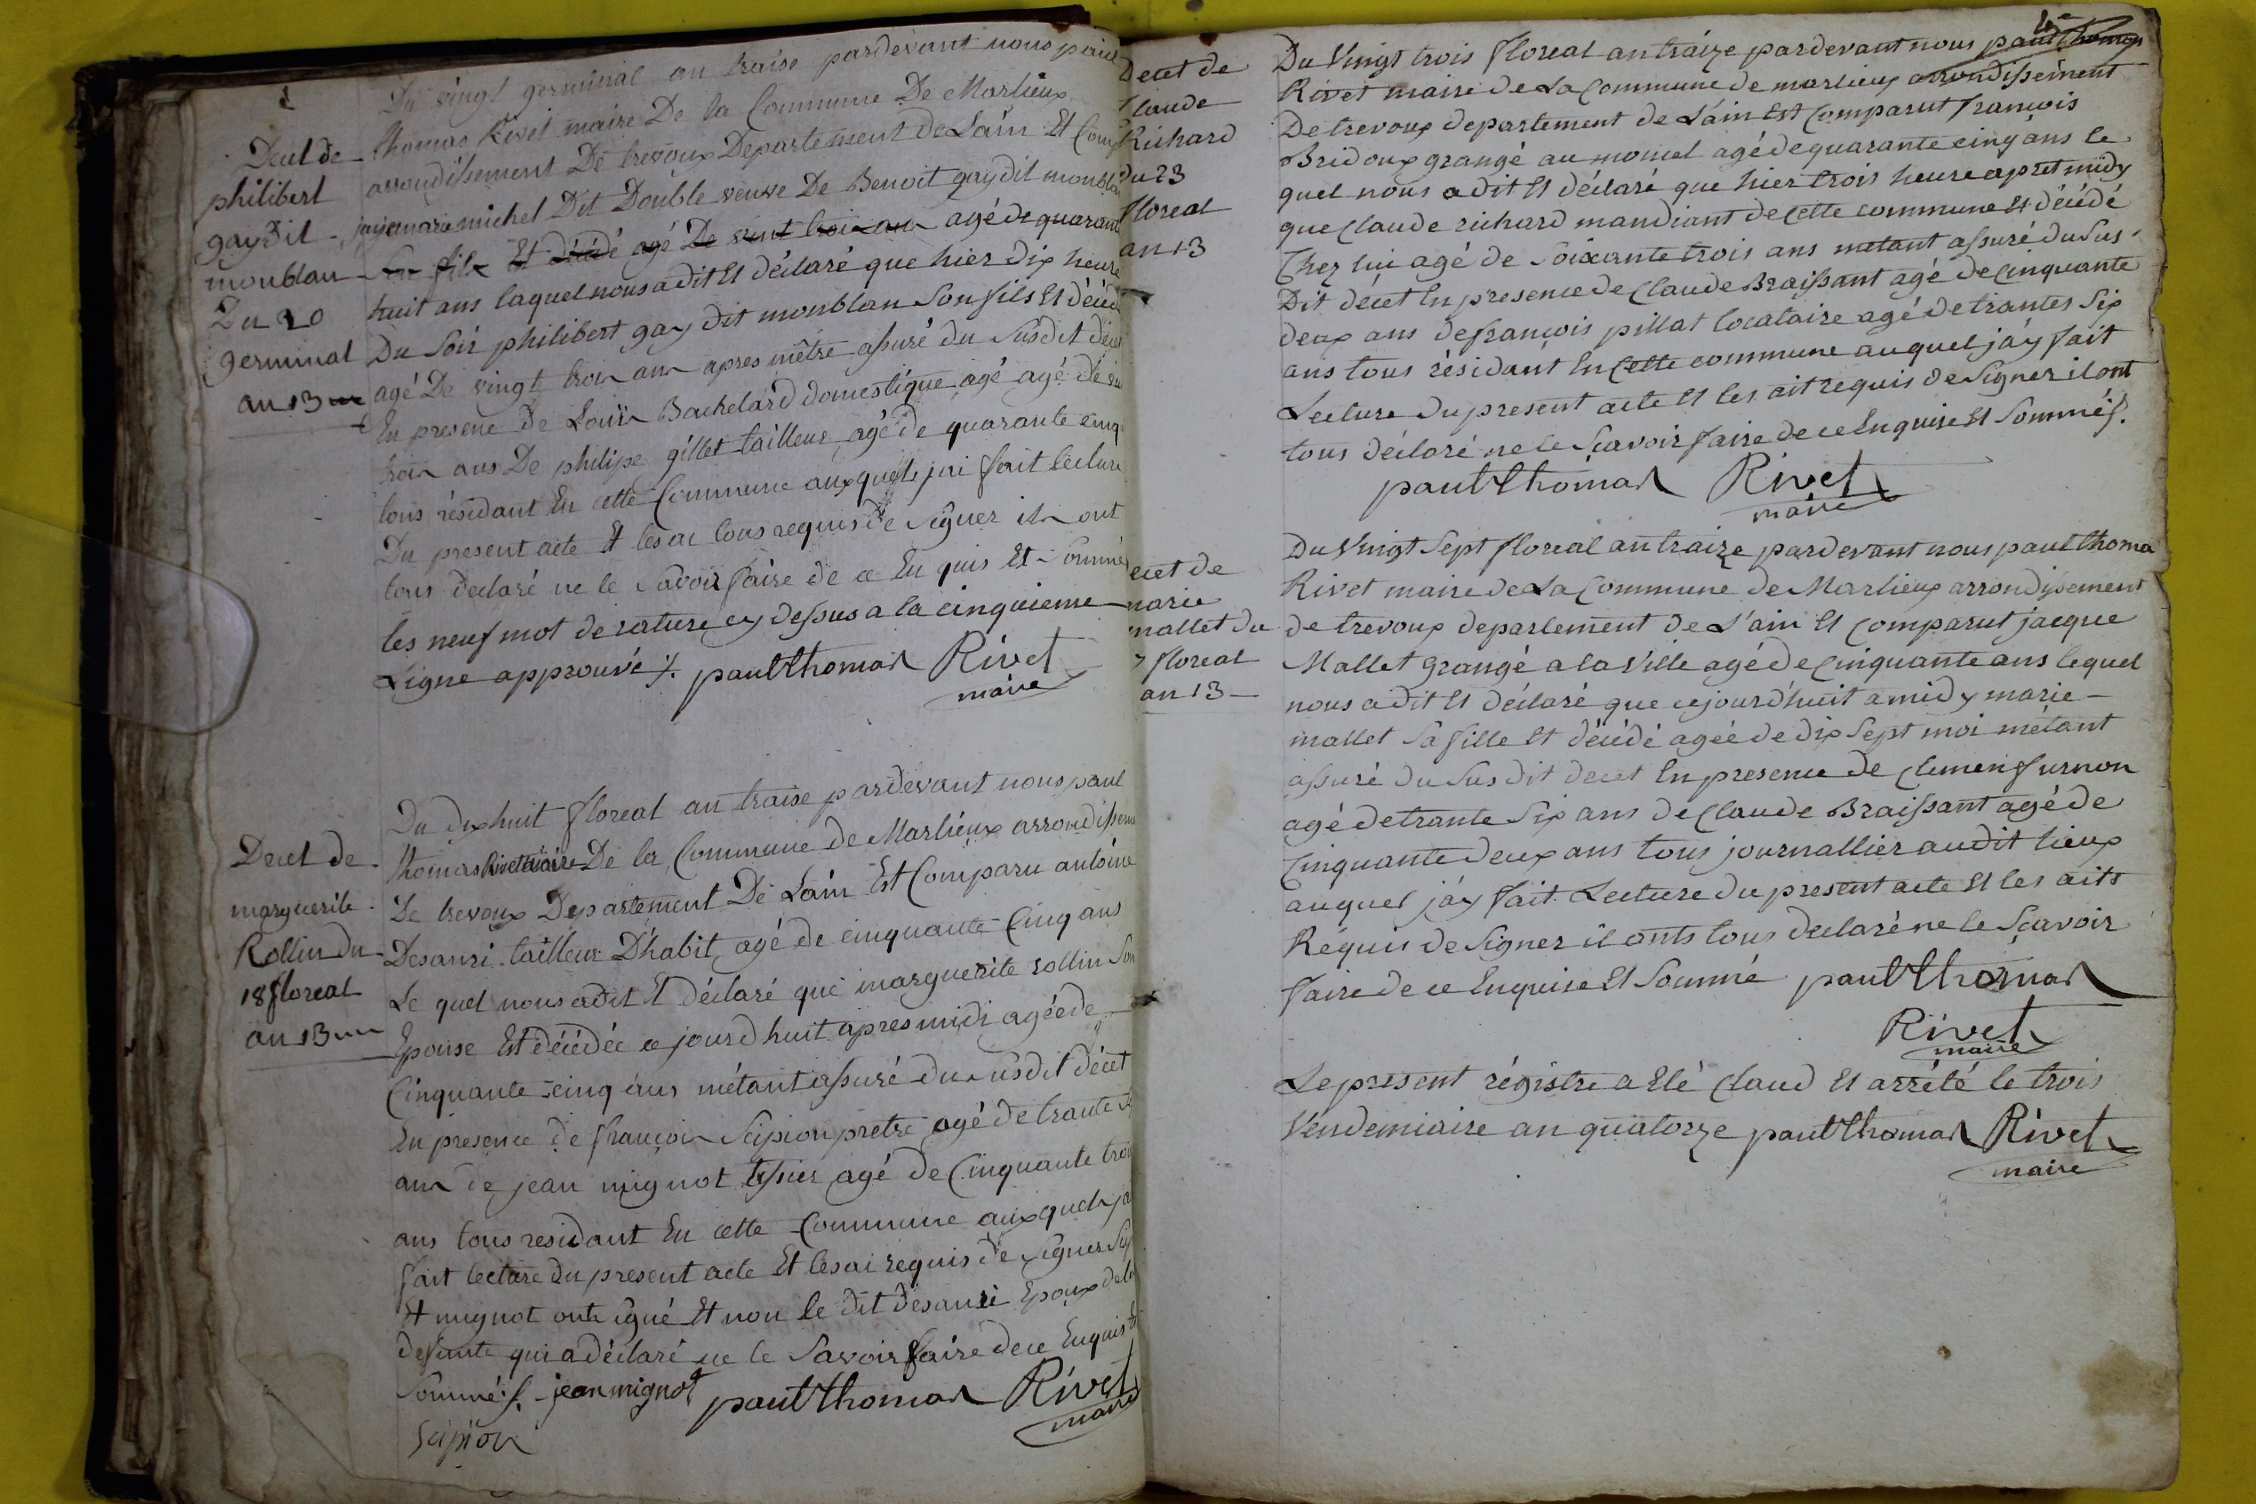 Du vingt germinal an traise pardevant nous paul
Decet de
philibert
gay dit
monblan
Du 20
germinal
an 13
thomas Rivet maire De la Commune De Marlieux
arrondissement De trevoux Departement de Lain Et Comp
marie michel Dit Double veuve De Benoit gay dit monbla
son fils Et décédé agé De vint trois ans agé de quarant
huit ans laquel nous a dit Et déclaré que hier dix heure
Du Soir philibert gay dit monblan Son fils Et décédé
agé De vingt trois ans apres mêtre assuré du Susdit décet
En presene De Louis Bachelard domestique agé agé de vin
trois ans De philipe gillet tailleur agé de quarante cinq
tous résidant En cette Commune auxquels jai fait lecture
Du present acte Et les ai tous requis de signer ils ont
tous declaré ne le savoir faire de ce En quis Et sommé
les neuf mot de rature cy dessus a la cinquieme
Ligne approuvé %. paul thomas Rivet
maire
Decet de
marguerite
Rollin du
18 floreal
an 13
Du dixhuit floreal an traise pardevant nous paul
thomas Rivet maire De la Commune de Marlieux arrondissem
De trevoux Departement De Lain Est Comparu antoine
Desansi tailleur D'habit agé de cinquante Cinq ans
Le quel nous a dit Et déclaré que marguerite rollin Son
Epouse Est décédée ce jourdhuit apres midi agée de
Cinquante cinq ans métant assuré du susdit décet
En presence de françois Scipion pretre agé de trante
ans de jean mignot tissier agé de Cinquante trois
ans tous residant En cette Commune auxquels jai
fait lecture du present acte Et les ai requis de signer Sip
Et mignot ont signé Et non le dit desansi Epoux de la
defunte qui a déclaré ne le Savoir faire de ce Enquis Et
Sommé %. jean mignot paul thomas Rivet
maire
Scipion
Decet de
Claude
Richard
du 23
floreal
an 13
Du Vingt trois floreal an traize pardevant nous paul thomas
Rivet maire de La Commune de marlieux arrondissement
De trevoux departement de L'ain Est Comparut françois
Bridoux grangé au momet agé de quarante cinq ans le
quel nous a dit Et déclaré que hier trois heure apret midy
que Claude richard mandiant de Cette commune Et décédé
Chez lui agé de Soixante trois ans metant assuré du Sus
Dit décet En presence de Claude Braissant agé de Cinquante
deux ans de françois pillat locataire agé de trantes Six
ans tous résidant En Cette commune auquel j'ay fait
Lecture du present acte Et les ait requis de Signer il ont
tous déclaré ne le Scavoir faire de ce Enquise Et Sommé %.
paul thomas Rivet
maire
ecet de
marie
mallet du
7 floreal
an 13
Du Vingt Sept floreal an traize pardevant nous paul thoma
Rivet maire de La Commune de Marlieux arrondissement
de trevoux departement de L'ain Et Comparut jacque
Mallet grangé a la Ville agé de Cinquante ans lequel
nous a dit Et déclaré que cejourd'huit a midy marie
mallet Sa fille Et décédé agée de dix Sept moi métant
assuré du Sus dit decet En presence de Clemen furnon
agé de trante Six ans de Claude Braissant agé de
Cinquante deux ans tous journallier audit lieux
auquel j'ay fait Lecture du present acte Et les aits
Requis de Signer il onts tous declaré ne le Scavoir
faire de ce Enquise Et Sommé paul thomas
Rivet
maire
Le present régistre a Eté Claud Et arrété le trois
Vendemiaire an quatorze paul thomas Rivet
maire